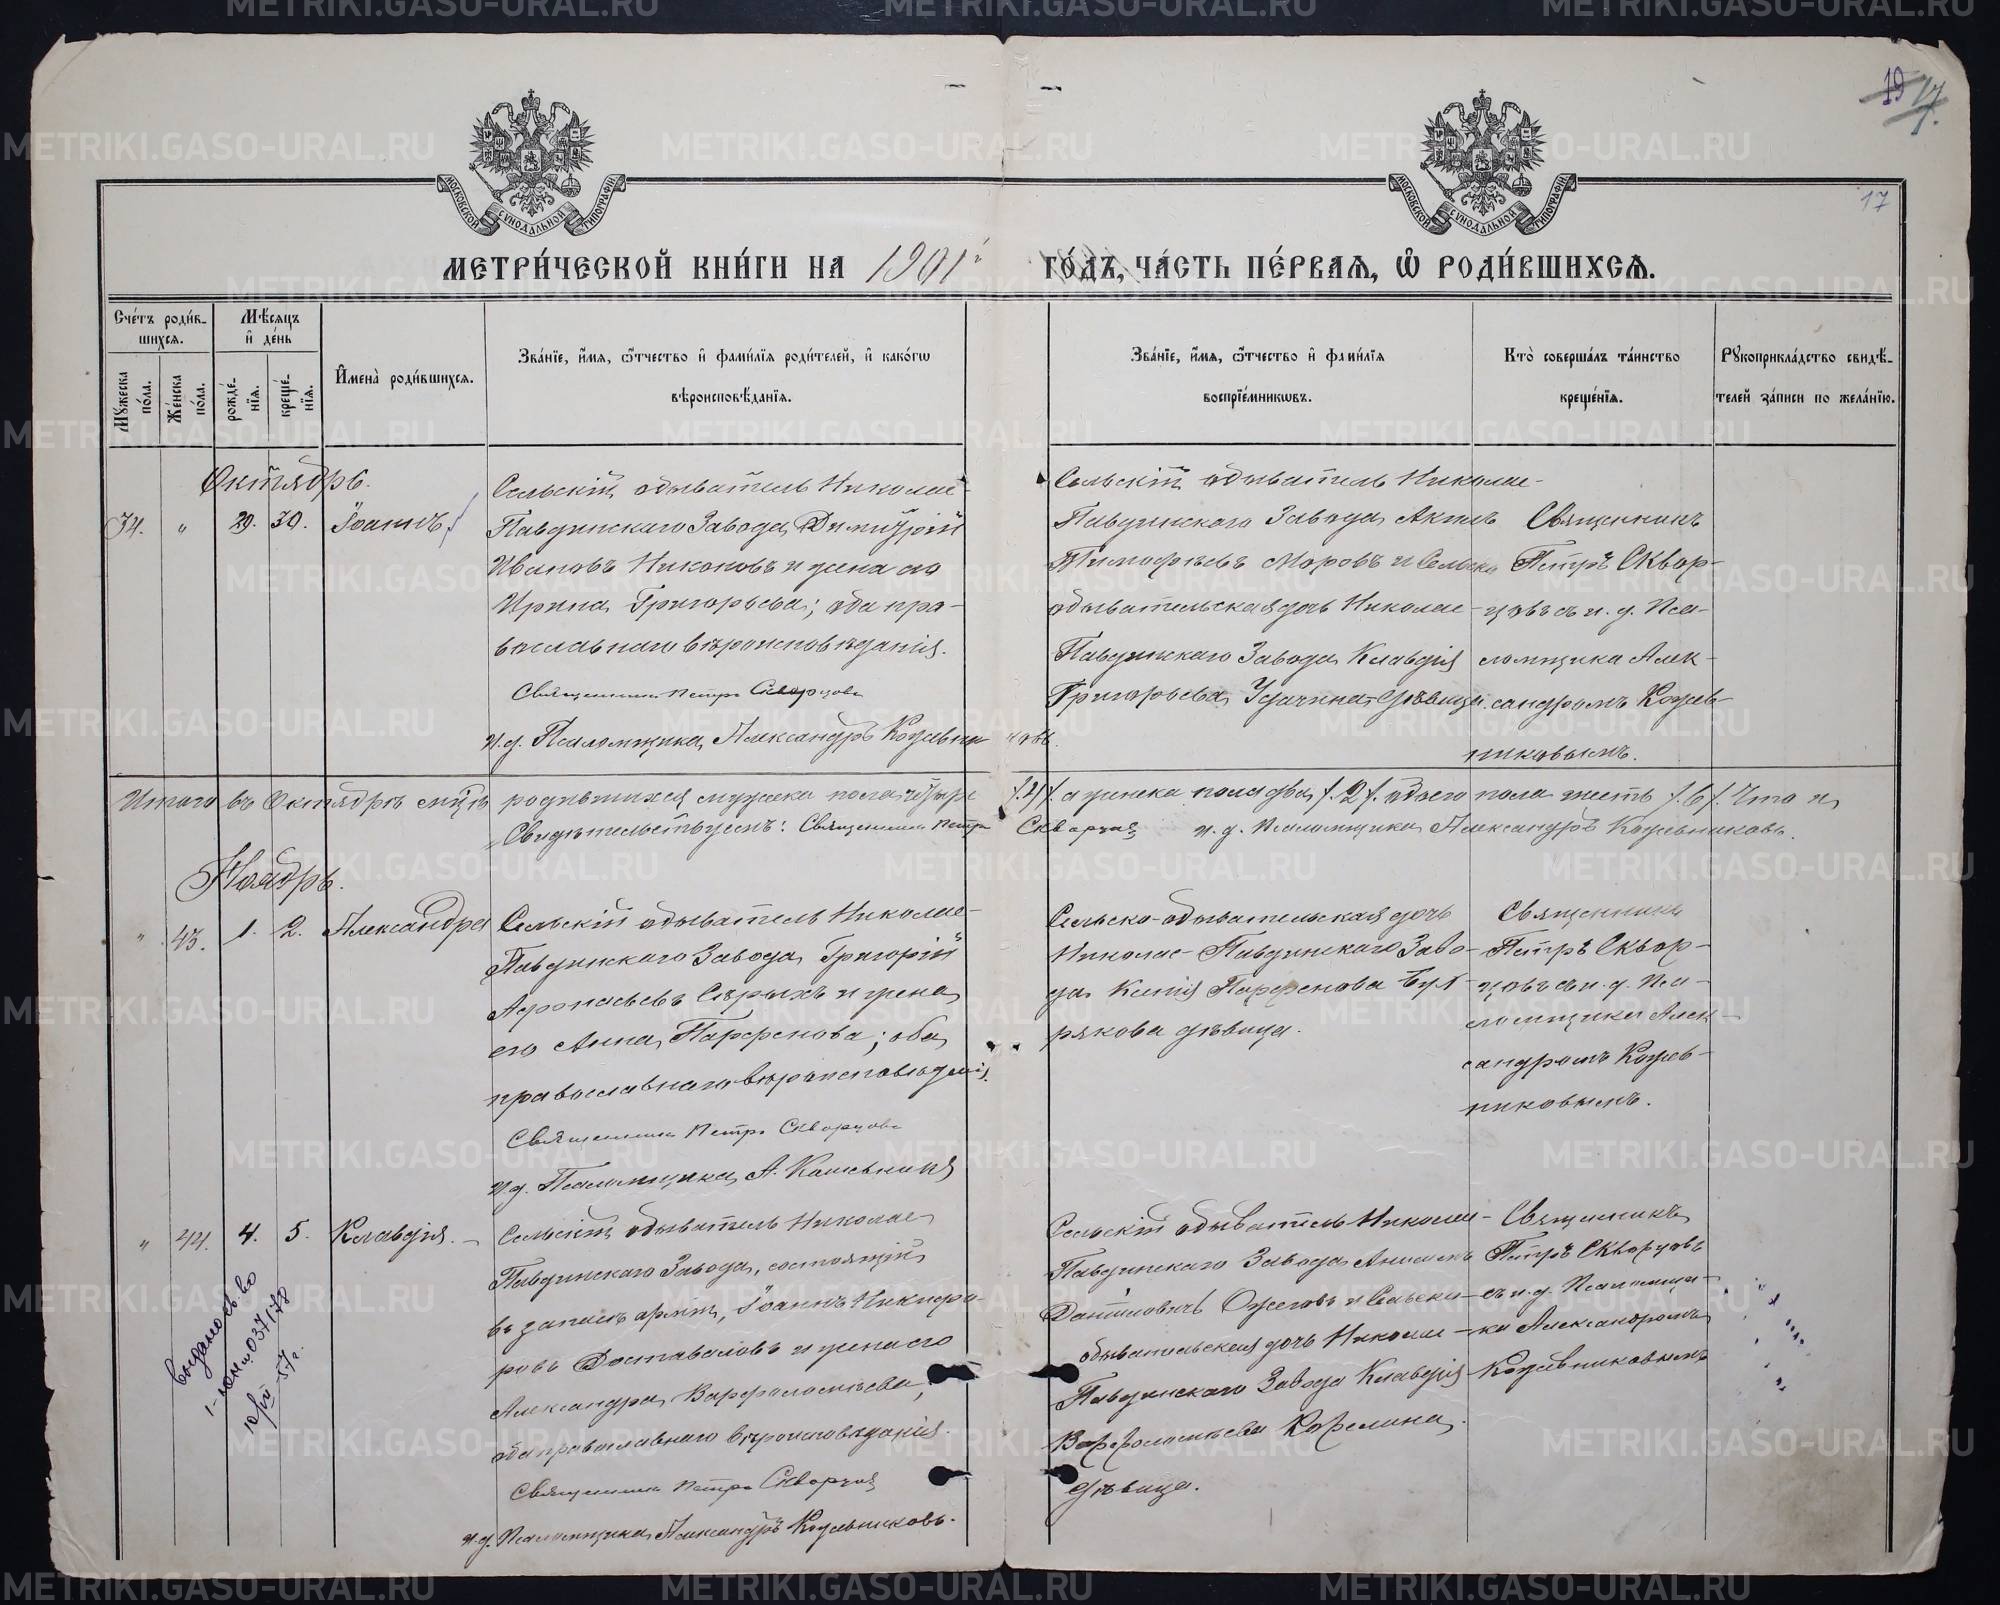 19 17.
17
МОСКОВСКОЙ СУНОДАЛЬНОЙ ТИПОГРАФІИ
МОСКОВСКОЙ СУНОДАЛЬНОЙ ТИПОГРАФІИ
МЕТРИ́ЧЕСКОЙ КНИ́ГИ НА 1901 г
ГО́ДЪ, ЧА́СТЬ ПЕ́РВАѦ, Ѡ҆ РОДИ́ВШИХСѦ.
Сче́тъ роди́в-
шихсѧ.
Мꙋжеска по́ла.
Же́нска по́ла.
Мѣ́сѧцъ
и҆ де́нь
рожде́-
нїѧ.
креще́-
нїѧ.
И҆мена̀ роди́вшихсѧ.
Зва́нїе, и҆́мѧ, ѻ҆́тчество и҆ фами́лїѧ роди́телей, и҆ како́гѡ
вѣроисповѣ́данїѧ.
Зва́нїе, и҆́мѧ, ѻ҆́тчество и҆ фами́лїѧ
воспрїе́мникѡвъ.
Кто̀ соверша́лъ та́инство
креще́нїѧ.
Рꙋкоприкла́дство свидѣ́-
телей за́писи по жела́нїю.
Октябрь.
34. " 29. 30. Іоаннъ
Сельскій обыватель Николае-
Павдинскаго Завода Димитрій
Ивановъ Никоновъ и жена его
Ирина Григорьева; оба пра-
вославнаго вѣроисповѣданія.
Священникъ Петръ Скворцовъ
и. д. Псаломщика Александръ Кожевни ковъ.
Сельскій обыватель Николае-
Павдинскаго Завода
Тимофѣевъ Моровъ и Сельско
обывательская дочь Николае-
Павдинскаго Завода Клавдія
Григорьева Удачина, дѣвица.
Священникъ
Петръ Сквор-
цовъ съ и. д. Пса-
ломщика Алек-
сандромъ Кожев-
никовымъ.
Итого въ Октябрѣ м-цѣ родившихся мужеска пола четыре /.4/. а женска пола два /.2/. обоего пола шесть /.6/. Что и
Свидѣтельствуемъ: Священникъ Петръ Скворцовъ и. д. Псаломщика Александръ Кожевниковъ.
Ноябрь.
" 43. 1. 2. Александра
Сельскій обыватель Николае-
Павдинскаго Завода Григорій
Афонасьевъ Сѣрыхъ и жена
его Анна Парфенова; оба
православнаго вѣроисповѣданія.
Священникъ Петръ Скворцовъ
и. д. Псаломщика А. Кожевников
Сельско-обывательская дочь
Николае-Павдинскаго Заво-
да Парфенова
рякова дѣвица.
Священникъ
Петръ Сквор-
цовъ съ и. д. Пса-
ломщика Алек-
сандромъ Кожев-
никовымъ.
" 44. 4. 5. Клавдія.
Сельскій обыватель Николае-
Павдинскаго Завода, состоящій
въ запасѣ арміи, Іоаннъ Никифо-
ровъ Доставаловъ и жена его
Александра Варфоломѣева;
оба православнаго вѣроисповѣданія.
Священникъ Петръ Скворцовъ
и. д. Псаломщика Александръ Кожевниковъ.
Сельскій обыватель Николае-
Павдинскаго Завода
Даниловичъ Ожеговъ и Сельско-
обывательская дочь Николае-
Павдинскаго Завода Клавдія
Варфоломѣева Корелина,
дѣвица.
Священникъ
Петръ Скворцовъ
съ и. д. Псаломщи-
ка Александромъ
Кожевниковымъ
Выдано св-во
037178
57 г.
METRIKI.GASO-URAL.RU